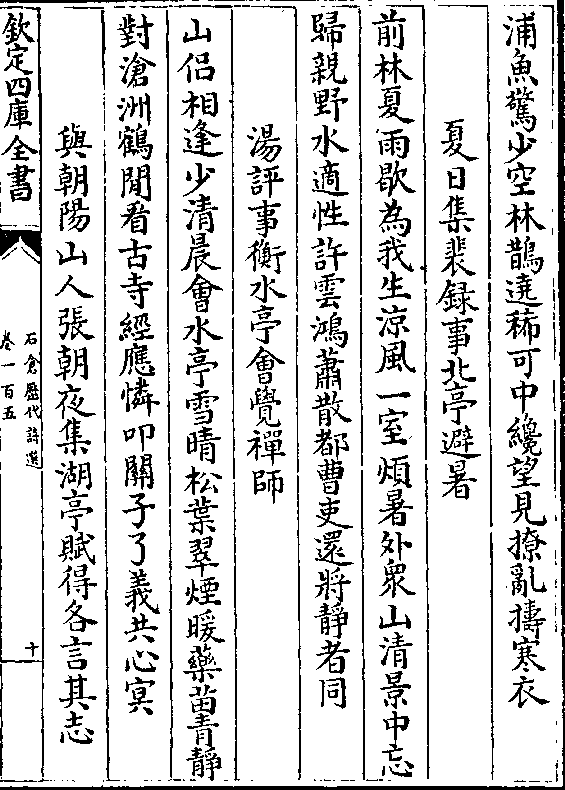 浦魚驚少空林鵲遶稀可中纔望見撩亂擣寒衣
夏日集裴録事北亭避暑
前林夏雨歇為我生涼風一室煩暑外衆山清景中忘
歸親野水適性許雲鴻蕭散都曹吏還將靜者同
湯評事衡水亭會覺禪師
山侣相逢少清晨會水亭雪晴松葉翠煙暖藥苗青靜
對滄洲鶴閒看古寺經應憐叩關子了義共心冥
與朝陽山人張朝夜集湖亭賦得各言其志
欽定四庫全書
石倉歷代詩選
卷一百五
十